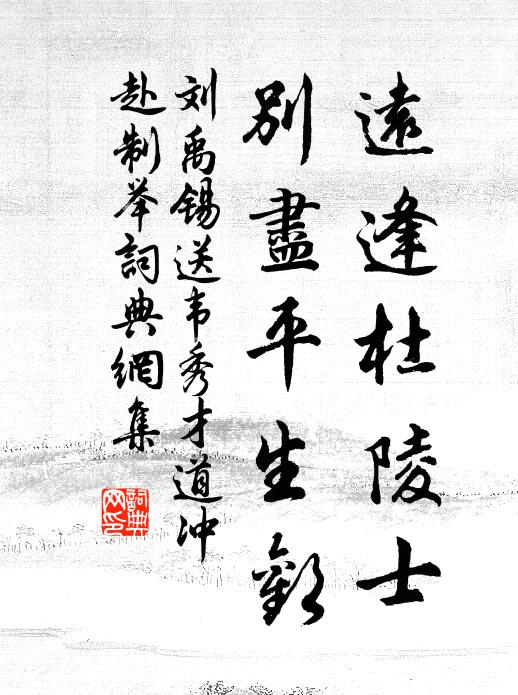 遠逢杜陵士
別盡平生歡
刘禹锡送韦秀才道冲
赴制举詞典網集
詞典网印